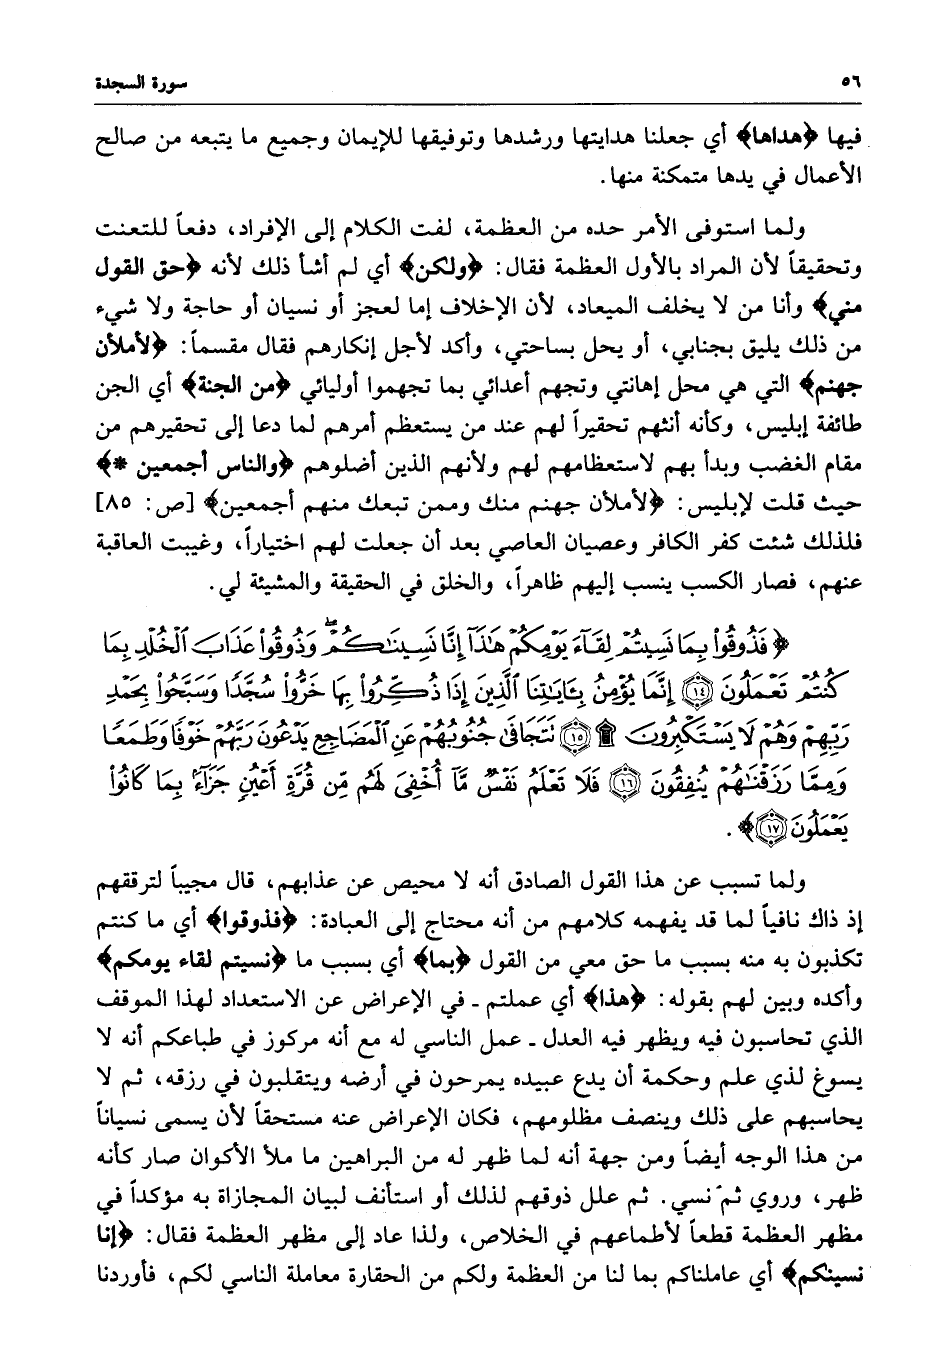 ٥٦ سورة السجدة
فيها ﴿هداها﴾ أي جعلنا هدايتها ورشدها وتوفيقها للإيمان وجميع ما يتبعه من صالح
الأعمال في يدها متمكنة منها.
ولما استوفى الأمر حده من العظمة، لفت الكلام إلى الإفراد، دفعاً للتعنت
وتحقيقاً لأن المراد بالأول العظمة فقال: ﴿ولكن﴾ أي لم أشأ ذلك لأنه ﴿حق القول
مني﴾ وأنا من لا يخلف الميعاد، لأن الإخلاف إما لعجز أو نسيان أو حاجة ولا شيء
من ذلك يليق بجنابي، أو يحل بساحتي، وأكد لأجل إنكارهم فقال مقسماً: ﴿لأملأن
جهنم﴾ التي هي محل إهانتي وتجهم أعدائي بما تجهموا أوليائي ﴿من الجنة﴾ أي الجن
طائفة إبليس، وكأنه أنثهم تحقيراً لهم عند من يستعظم أمرهم لما دعا إلى تحقيرهم من
مقام الغضب وبدأ بهم لاستعظامهم لهم ولأنهم الذين أضلوهم ﴿والناس أجمعين *﴾
حيث قلت لإبليس: ﴿لأملأن جهنم منك وممن تبعك منهم أجمعين﴾ [ص: ٨٥]
فلذلك شئت كفر الكافر وعصيان العاصي بعد أن جعلت لهم اختياراً، وغيبت العاقبة
عنهم، فصار الكسب ينسب إليهم ظاهراً، والخلق في الحقيقة والمشيئة لي.
﴿فَذُوقُواْ بِمَا نَسِيتُمْ لِقَآءَ يَوْمِكُمْ هَٰذَآ إِنَّا نَسِينَٰكُمْ ۖ وَذُوقُواْ عَذَابَ ٱلْخُلْدِ بِمَا
كُنتُمْ تَعْمَلُونَ ﴿١٤﴾ إِنَّمَا يُؤْمِنُ بِـَٔايَٰتِنَا ٱلَّذِينَ إِذَا ذُكِّرُواْ بِهَا خَرُّواْ سُجَّدًا وَسَبَّحُواْ بِحَمْدِ
رَبِّهِمْ وَهُمْ لَا يَسْتَكْبِرُونَ ۩ ﴿١٥﴾ تَتَجَافَىٰ جُنُوبُهُمْ عَنِ ٱلْمَضَاجِعِ يَدْعُونَ رَبَّهُمْ خَوْفًا وَطَمَعًا
وَمِمَّا رَزَقْنَٰهُمْ يُنفِقُونَ ﴿١٦﴾ فَلَا تَعْلَمُ نَفْسٌ مَّآ أُخْفِىَ لَهُم مِّن قُرَّةِ أَعْيُنٍ جَزَآءًۢ بِمَا كَانُواْ
يَعْمَلُونَ ﴿١٧﴾﴾.
ولما تسبب عن هذا القول الصادق أنه لا محيص عن عذابهم، قال مجيباً لترققهم
إذ ذاك نافياً لما قد يفهمه كلامهم من أنه محتاج إلى العبادة: ﴿فذوقوا﴾ أي ما كنتم
تكذبون به منه بسبب ما حق معي من القول ﴿بما﴾ أي بسبب ما ﴿نسيتم لقاء يومكم﴾
وأكده وبين لهم بقوله: ﴿هذا﴾ أي عملتم ـ في الإعراض عن الاستعداد لهذا الموقف
الذي تحاسبون فيه ويظهر فيه العدل ـ عمل الناسي له مع أنه مركوز في طباعكم أنه لا
يسوغ لذي علم وحكمة أن يدع عبيده يمرحون في أرضه ويتقلبون في رزقه، ثم لا
يحاسبهم على ذلك وينصف مظلومهم، فكان الإعراض عنه مستحقاً لأن يسمى نسياناً
من هذا الوجه أيضاً ومن جهة أنه لما ظهر له من البراهين ما ملأ الأكوان صار كأنه
ظهر، وروي ثمّ نسي. ثم علل ذوقهم لذلك أو استأنف لبيان المجازاة به مؤكداً في
مظهر العظمة قطعاً لأطماعهم في الخلاص، ولذا عاد إلى مظهر العظمة فقال: ﴿إنا
نسينكم﴾ أي عاملناكم بما لنا من العظمة ولكم من الحقارة معاملة الناسي لكم، فأوردنا